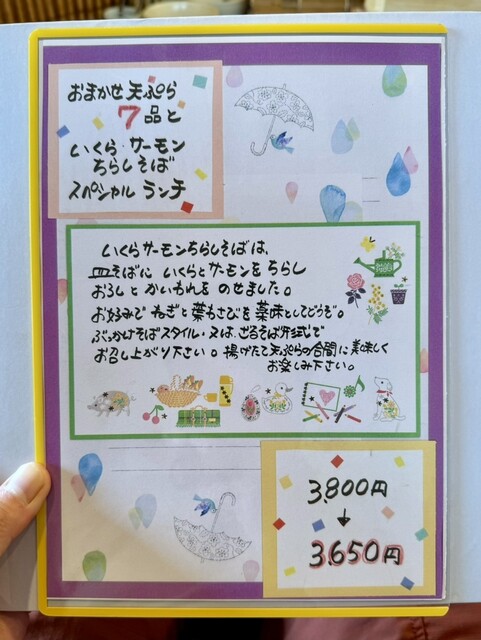 おまかせ天ぷら
7品と
いくら・サーモン
ちらしそば
スペシャル ランチ
いくらサーモンちらしそばは、
皿そばに いくらとサーモンを ちらし
おろしと かいわれを のせました。
お好みで ねぎと 葉わさびを 薬味としてどうぞ。
ぶっかけそばスタイル・又は、ざるそば形式で
お召し上がり下さい。揚げたて天ぷらの合間に美味しく
お楽しみ下さい。
3,800円
↓
3,650円